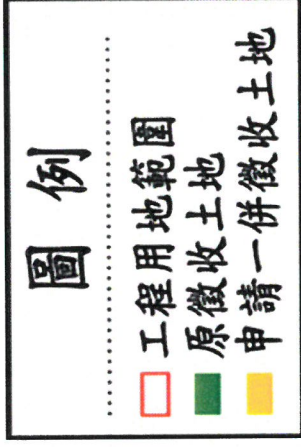 圖例
工程用地範圍
原徵收土地
申請一併徵收土地